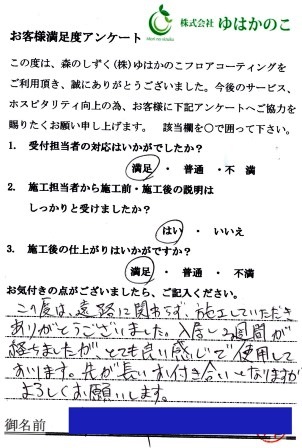 株式会社 ゆはかのこ
Mori no shizuku
お客様満足度アンケート
この度は、森のしずく(株)ゆはかのこフロアコーティングを
ご利用頂き、誠にありがとうございました。今後のサービス、
ホスピタリティ向上の為、お客様に下記アンケートへご協力を
賜りたくお願い申し上げます。 該当欄を○で囲って下さい。
1. 受付担当者の対応はいかがでしたか?
満足 ・ 普通 ・不 満
2. 施工担当者から施工前・施工後の説明は
しっかりと受けましたか?
はい ・ いいえ
3. 施工後の仕上がりはいかがですか?
満足 ・ 普通 ・ 不満
お気付きの点がございましたら、ご記入ください。
この度は、遠路に関わらず、施工していただき
ありがとうございました。入居し2週間が
経ちましたが、とても良い感じで使用して
おります。先が長いお付き合いとなりますが
よろしくお願いします。
御名前